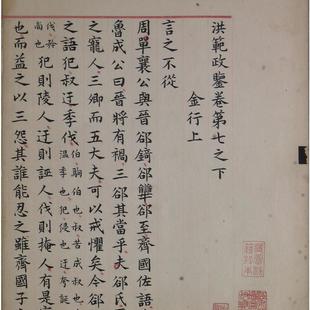 洪範政鑒卷第七之下
金行上
言之不從
周單襄公與晉郤錡郤犨郤至齊國佐語
魯成公曰晉將有禍三郤其當乎夫郤氏
之寵人三卿而五大夫可以戒懼矣今郤
之語犯叔迂季伐伯錡也叔苦成叔也
溫季也犯侵也迂夸誕
伐
尚也犯則陵人迂則誣人伐則掩人有是
也而益之以三怨其誰能忍之雖齊國子